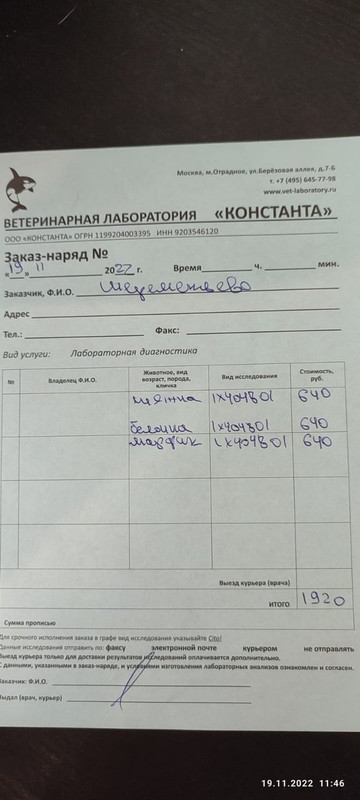 Москва, м.Отрадное, ул.Берёзовая аллея, д.7-Б
т. +7 (495) 645-77-98
www.vet-laboratory.ru
ВЕТЕРИНАРНАЯ ЛАБОРАТОРИЯ «КОНСТАНТА»
ООО «КОНСТАНТА» ОГРН 1199204003395 ИНН 9203546120
Заказ-наряд №
«19» 11 2022 г. Время ч. мин.
Заказчик, Ф.И.О.
Адрес
Тел.: Факс:
Вид услуги: Лабораторная диагностика
№ Владелец Ф.И.О. Животное, вид возраст, порода, кличка Вид исследования Стоимость, руб.
1X404801 640
белочка 1X404801 640
1X404801 640
Выезд курьера (врача)
ИТОГО 1920
Сумма прописью
Для срочного исполнения заказа в графе вид исследования указывайте Cito!
Данные исследования отправить по: факсу электронной почте курьером не отправлять
Выезд курьера только для доставки результатов исследований оплачивается дополнительно.
С данными, указанными в заказ-наряде, и условиями изготовления лабораторных анализов ознакомлен и согласен.
Заказчик: Ф.И.О.
Выдал (врач, курьер)
19.11.2022 11:46